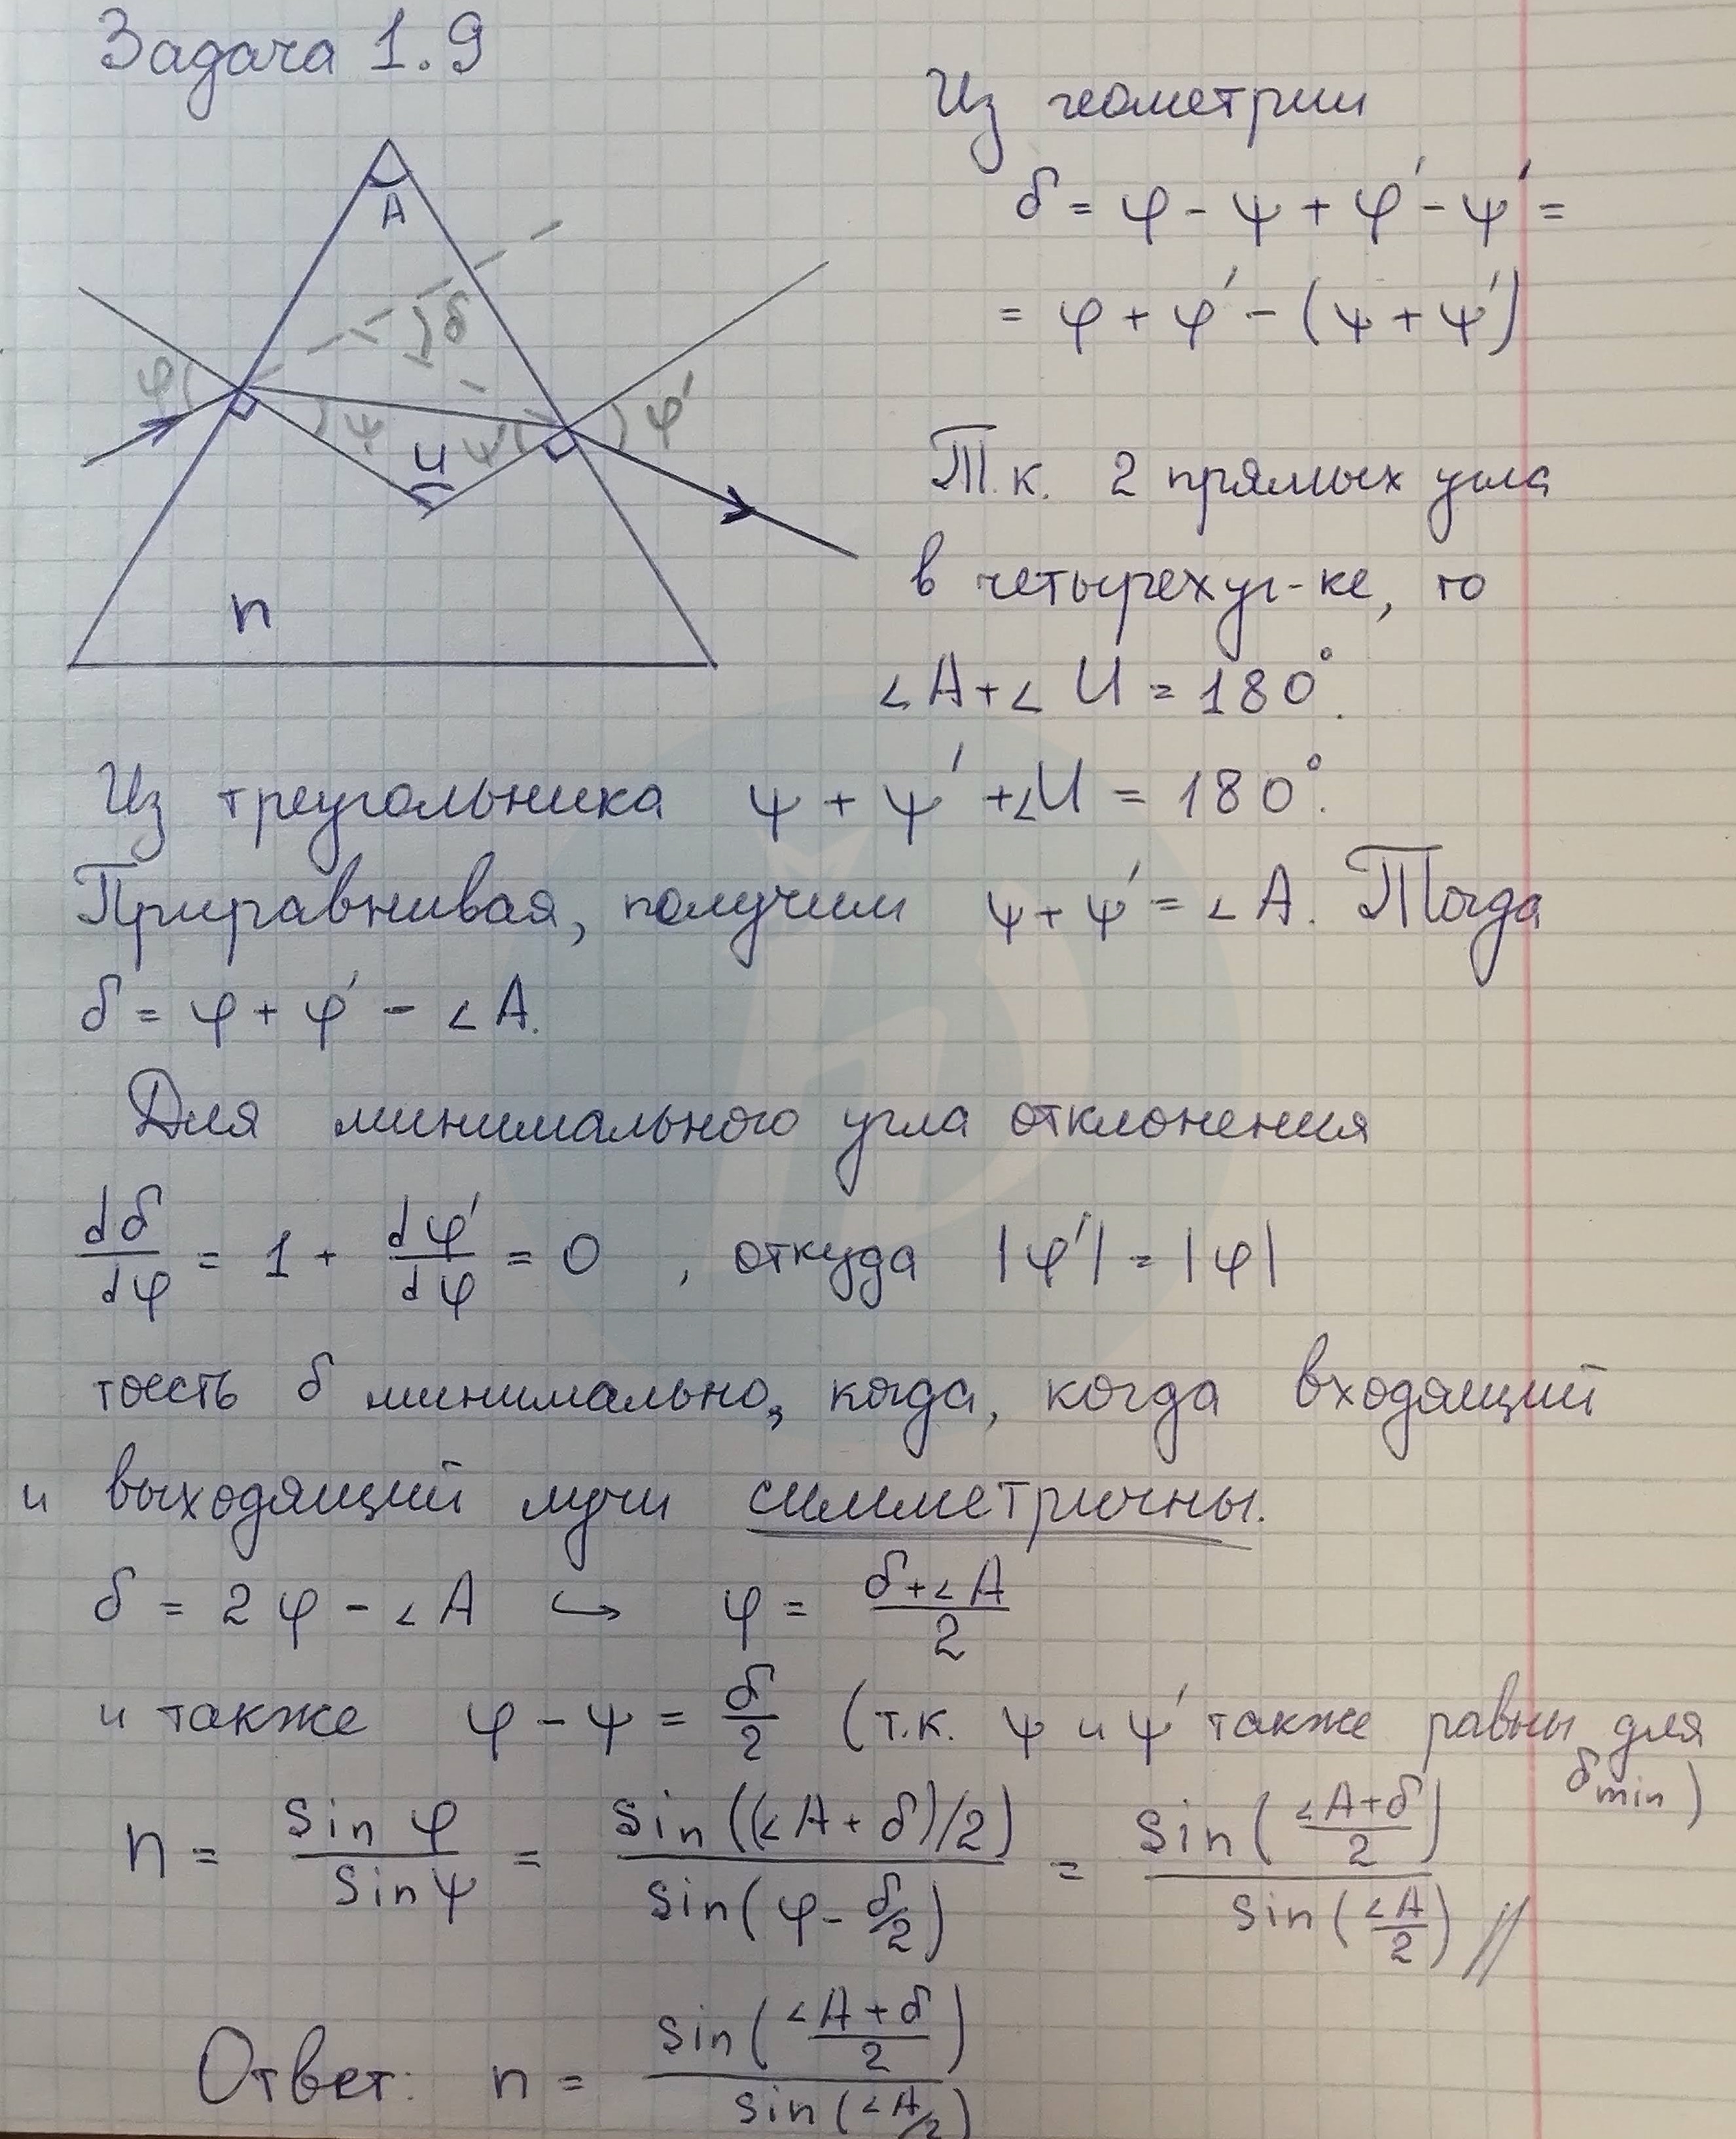 Задача 1.9
A
δ
φ
ψ
ψ'
φ'
U
n
Из геометрии
δ = φ - ψ + φ' - ψ' =
= φ + φ' - (ψ + ψ')
Т.к. 2 прямых угла
в четырехуг-ке, то
∠A + ∠U = 180°.
Из треугольника ψ + ψ' + ∠U = 180°.
Приравнивая, получим ψ + ψ' = ∠A. Тогда
δ = φ + φ' - ∠A.
Для минимального угла отклонения
dδ/dφ = 1 + dφ'/dφ = 0, откуда |φ'| = |φ|
тоесть δ минимально, когда, когда входящий
и выходящий лучи симметричны.
δ = 2φ - ∠A ↪ φ = (δ+∠A)/2
и также φ - ψ = δ/2 (т.к. ψ и ψ' также равны для
δmin)
n = sin φ / sin ψ = sin((∠A + δ)/2) / sin(φ - δ/2) = sin((∠A+δ)/2) / sin(∠A/2) //
Ответ: n = sin((∠A+δ)/2) / sin(∠A/2)